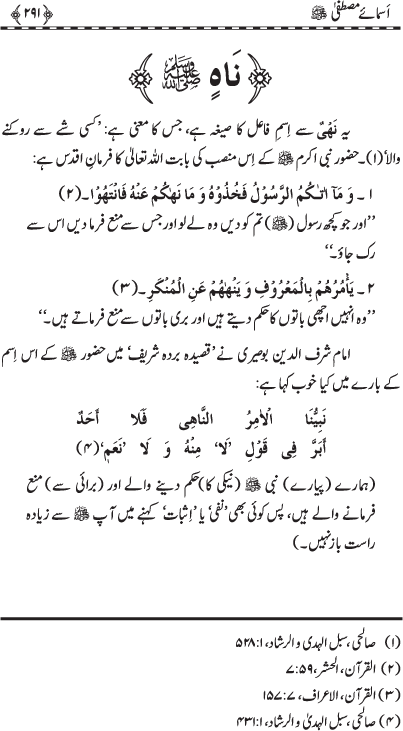 اَسمائے مصطفیٰ ﷺ ﴿۲۹۱﴾
﴿نَاہٍ ﷺ﴾
یہ نَھْیٌ سے اِسمِ فاعل کا صیغہ ہے، جس کا معنی ہے: ’کسی شے سے روکنے
والا‘(۱)۔ حضور نبی اکرم ﷺ کے اِس منصب کی بابت اللہ تعالیٰ کا فرمانِ اقدس ہے:
۱۔ وَ مَآ اٰتٰـکُمُ الرَّسُوْلُ فَخُذُوْهُ وَ مَا نَهٰکُمْ عَنْهُ فَانْتَهُوْا۔(۲)
’’اور جو کچھ رسول (ﷺ) تم کو دیں وہ لے لو اور جس سے منع فرما دیں اس سے
رک جاؤ۔‘‘
۲۔ یَاْمُرُهُمْ بِالْمَعْرُوْفِ وَ یَنْهٰهُمْ عَنِ الْمُنْکَرِ۔(۳)
’’وہ انہیں اچھی باتوں کا حکم دیتے ہیں اور بری باتوں سے منع فرماتے ہیں۔‘‘
امام شرف الدین بوصیری نے ’قصیدہ بردہ شریف‘ میں حضور ﷺ کے اس اِسم
کے بارے میں کیا خوب کہا ہے:
نَبِیُّنَا الْاٰمِرُ النَّاهِی فَلَا أَحَدٌ
أَبَرَّ فِی قَوْلِ ’لَا‘ مِنْهُ وَ لَا ’نَعَمٖ‘(۴)
(ہمارے (پیارے) نبی ﷺ (نیکی کا) حکم دینے والے اور (برائی سے) منع
فرمانے والے ہیں، پس کوئی بھی ’نفی‘ یا ’اِثبات‘ کہنے میں آپ ﷺ سے زیادہ
راست باز نہیں۔)
(۱) صالحی، سبل الہدیٰ و الرشاد، ۱: ۵۲۸
(۲) القرآن، الحشر، ۵۹: ۷
(۳) القرآن، الاعراف، ۷: ۱۵۷
(۴) صالحی، سبل الہدیٰ و الرشاد، ۱: ۴۳۱